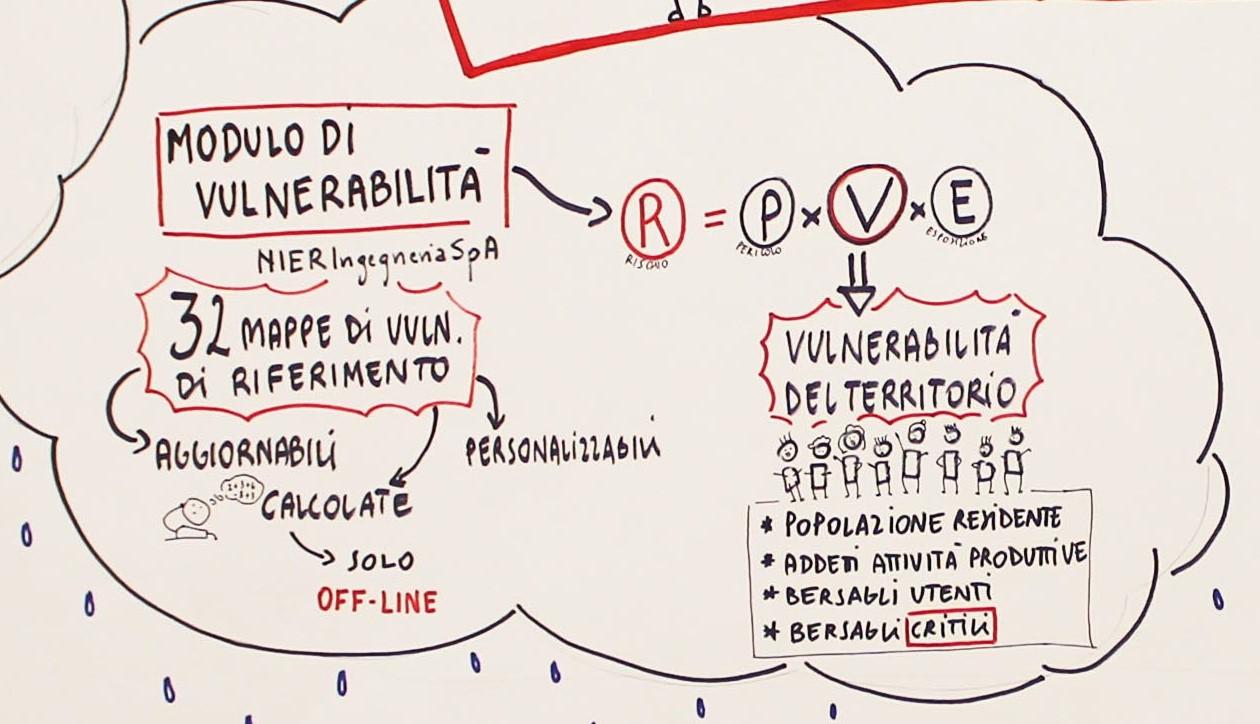 MODULO DI
VULNERABILITÀ
NIER Ingegneria SpA
R = P x V x E
RISCHIO
PERICOLO
ESPOSIZIONE
32 MAPPE DI VULN.
DI RIFERIMENTO
AGGIORNABILI
PERSONALIZZABILI
CALCOLATE
SOLO
OFF-LINE
VULNERABILITÀ
DEL TERRITORIO
* POPOLAZIONE RESIDENTE
* ADDETTI ATTIVITÀ PRODUTTIVE
* BERSAGLI UTENTI
* BERSAGLI CRITICI